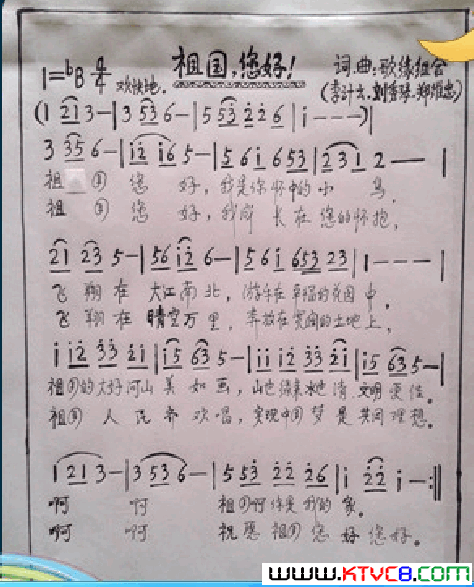 祖国,您好!
1=bB 4/4 欢快地. 词.曲:歌缘组合
(1 21 3-|3 53 6-|5 53 2 2 6|i---)|
3 35 6-|i2 i6 5-|5 6 i 6 53|2 3 1 2--|
祖 您 好,我是你怀中的小鸟,
祖 您 好,我成长在您的怀抱,
21 23 5-|56 i2 6-|56 i 653 23|1---|
飞翔在大江南北,游乐在幸福的花园中,
飞翔在晴空万里,奔放在宽阔的土地上,
i i2 33 2i|i5 63 5-|ii i2 33 2i|i5 63 5-|
祖国的大好河山美如画,山也绿来水也清文明更佳。
祖国人民齐欢唱,实现中国梦是共同理想。
1 21 3-|3 53 6-|5 53 22 26|i 22 i-:||
啊 啊 祖国啊你是我的家,
啊 啊 祝愿祖国您好您好。
www.KTVC8.com